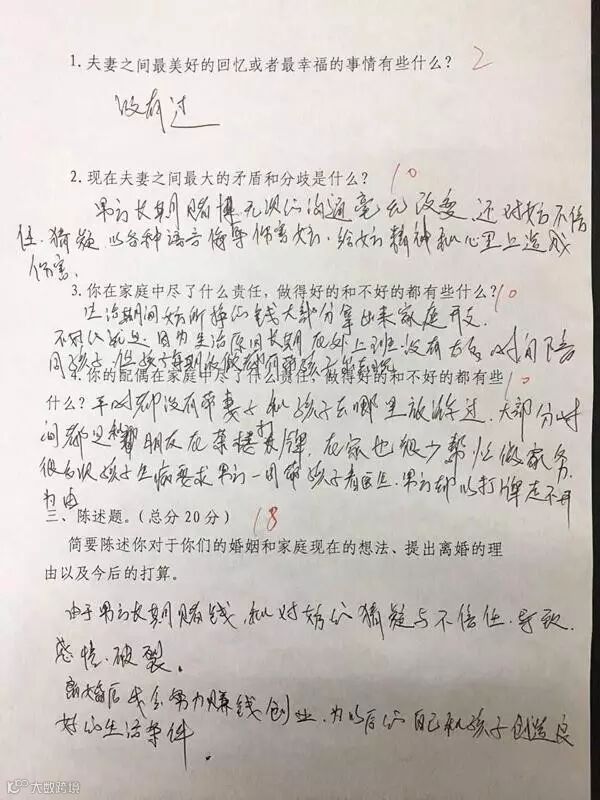 1.夫妻之间最美好的回忆或者最幸福的事情有些什么? 2
没有过
2.现在夫妻之间最大的矛盾和分歧是什么? 10
男方长期赌博无法沟通毫无改变,还对女方不信
任.猜疑 以各种语言侮辱伤害女方.给女方精神和心里上造成
伤害.
3.你在家庭中尽了什么责任,做得好的和不好的都有些什么? 10
生活期间女方所挣的钱大部分拿出来家庭开支.
不好的就是因为生活原因长期在外上班没有
同孩子.
4.你的配偶在家庭中尽了什么责任、做得好的和不好的都有些 10
什么? 平时都没有带妻子和孩子去哪里旅游过.大部分时
间都是和朋友在茶楼打牌,在家也很少帮忙做家务.
很多次孩子生病要求男方一同带孩子看医生.男方却以打牌走不开
为由
三、陈述题。(总分20分) 18
简要陈述你对于你们的婚姻和家庭现在的想法、提出离婚的理
由以及今后的打算。
由于男方长期赌钱,和对女方的猜疑与不信任.导致.
感情.破裂。
离婚后我会努力赚钱创业.为以后的自己和孩子创造良
好的生活条件.
大数跨境